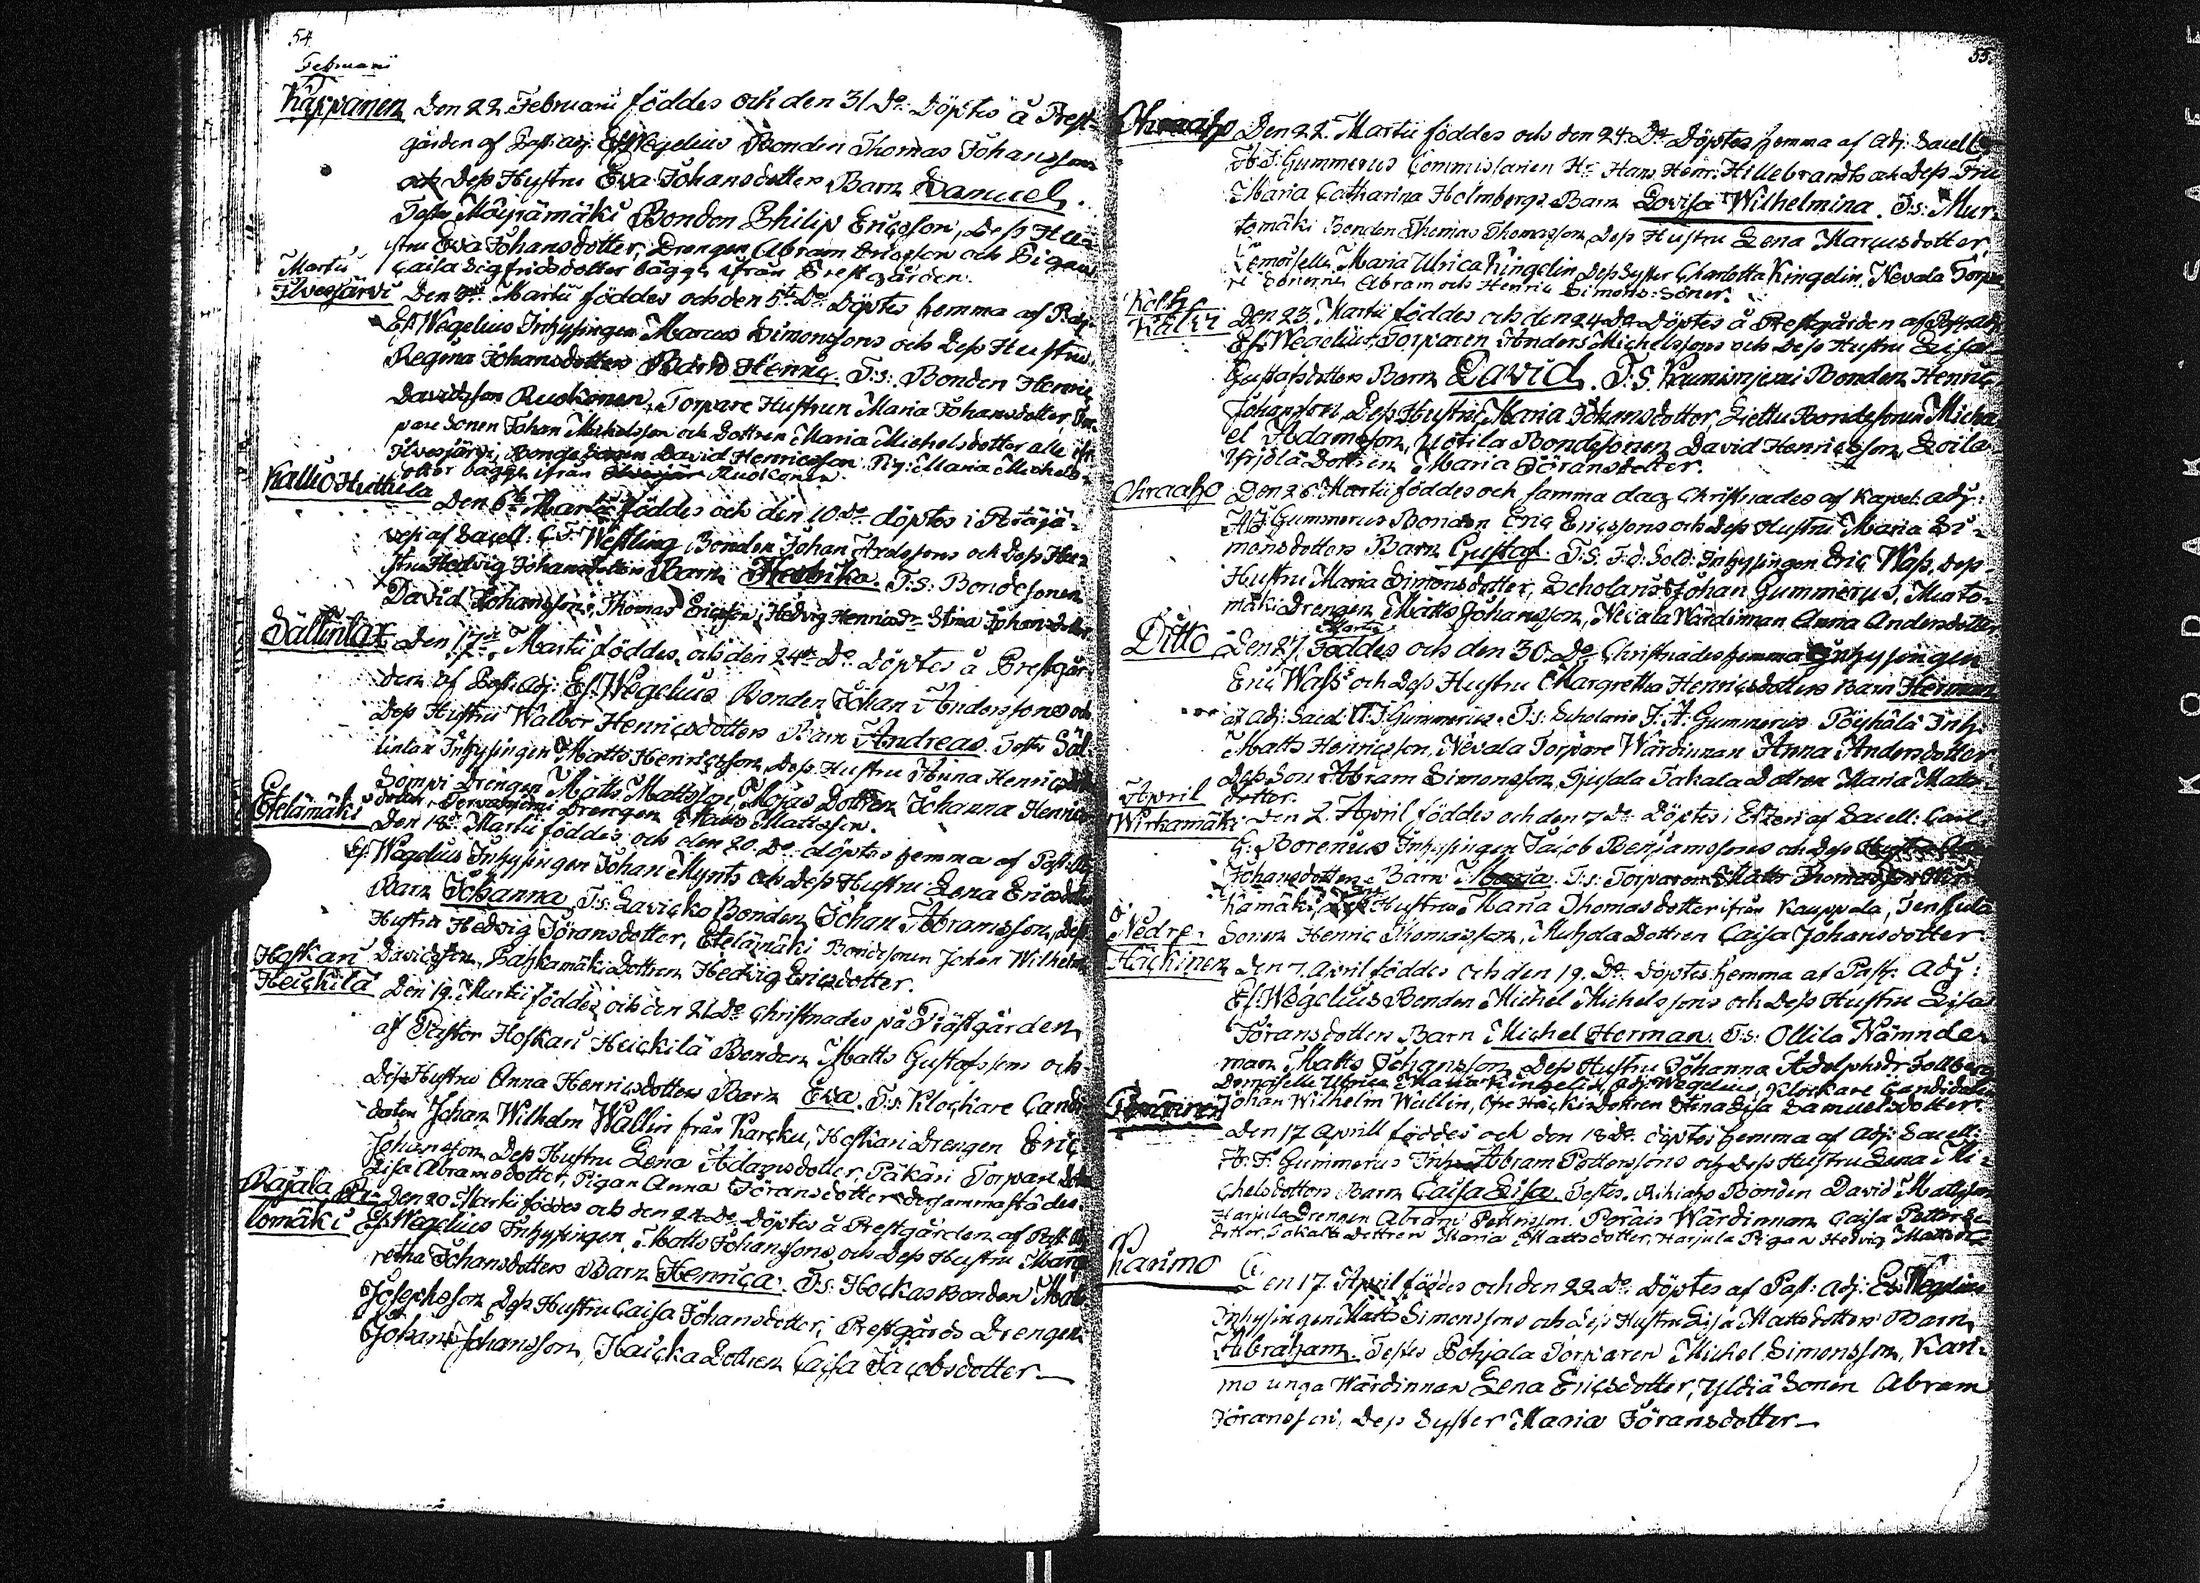 54.
Februarii
Käppänen Den 22 Februarii föddes och den 31 Do Döptes å Prest-
gården af Past: Adj: Ef Wegelius Bonden Thomas Johanssons
och Dess Hustru Eva Johansdotters Barn Samuel.
Testes Möyrämäki Bonden Philip Ericsson, Dess Hu-
stru Eva Johansdotter, Drengen Abram Ericsson och Pigan
Caisa Sigfridsdotter bägge ifrån Prestgården.
Martii
Ilvesjärvi Den Martii föddes och den 5te Do Döptes hemma af P. adj:
Ef. Wegelius Inhysingen Marcus Simonssons och Dess Hustru
Regina Johansdotters Barn Henric. T:s: Bonden Henric
Davidsson Ruokonen, Torpare Hustrun Maria Johansdotter, Tor-
pare Sonen Johan Michelsson och Dottren Maria Michelsdotter alle ifr:
Ilvesjärvi, Bonde David Henricsson Pig: Maria Michels-
dotter bägge ifrån Ruokonen.
Kallio Huttula Den 6te Martii föddes och den 10 Do döptes i
af Sacell: C. J. Westling Bonden Johan Axelssons och Dess Hu-
stru Hedvig Johansdotters Barn Hedvika. T:s: Bondesonen
David Johansson, Thomas Ericsson, Hedvig Henricsdr Stina Johansdotter
Sällinlax Den 17de Martii föddes, och den 24de Do Döptes å Prestgår-
den af Past: Adj: Ef. Wegelius Bonden Johan Anderssons och
Dess Hustru Walbor Henricsdotters Barn Andreas. Testes Säl-
linlax Inhysingen Matts Henricsson, Dess Hustru Anna Henricsdotter
Sompi Drengen Matts Mattsson, Mojas Dottren Johanna Henrics-
dotter, Drengen Matts Mattsson.
Etelämäki Den 18de Martii föddes och den 20. Do döptes hemma af Past: Adj:
Ef. Wegelius Inhysingen Johan Mynts och Dess Hustru Lena Ericsdotters
Barn Johanna. T:s: Lavicko Bonden Johan Abramsson, Dess
Hustru Hedvig Jöransdotter, Etelämäki Bondesonen Johan Wilhelm
Davidsson, Dottren Hedvig Ericsdotter.
Hofkari
Heickilä Den 19. Martii föddes och den 21 Do Christnades på Prästgården
af Pastor Hofkari Heickilä Bonden Matts Gustafssons och
Dess Hustru Anna Henricsdotters Barn Eva. T:s: Klockare Candi-
daten Johan Wilhelm Wallin från Karcku, Hofkari Drengen Eric
Johansson Dess Hustru Lena Adamsdotter, Päkäri Torpare
Lisa Abramsdotter, Pigan Anna Jöransdotter dersammastädes.
Rajala Den 20 Martii föddes och den 24 Do Döptes å Prestgården af Past. Adj
lomäki Ef. Wegelius Inhysingen Matts Johanssons och Dess Hustru Marg-
retha Johansdotters Barn Henrica. T:s: Hockas Bonden Matts
Josephsson Dess Hustru Caisa Johansdotter, Prestgårds Drengen
Johan Johansson, Haicka Dottren Caisa Jacobsdotter
55.
Ohraaho Den 22. Martii föddes och den 24. Do Döptes hemma af Adj: Sacell:
A. J. Gummerus Commissarien Hr Hans Henr: Hillebrandts och Dess Fru
Maria Catharina Holmbergs Barn Lovisa Wilhelmina. T:s: Mur-
tomäki Bonden Thomas Thomasson, Dess Hustru Lena Marcusdotter
Demoiselle Maria Ulrica Kingelin, Dess Syster Charlotta Kingelin, Nevala Torpa-
re Sönerne Abram och Henric Simons Söner.
Kölhi
Den 23 Martii föddes och den 24 Do Döptes å Prestgården af Past. Adj.
Ef. Wegelius Torparen Anders Michelssons och Dess Hustru Lisa
Gustafsdotters Barn David. T:s: Bonden Henric
Johansson Dess Hustru Maria Johansdotter, Bondesonen Micha-
el Adamsson, Uotila Bondesonen David Henricsson, Zoila
Yrjölä Dottren Maria Jöransdotter.
Ohraaho Den 26 Martii föddes och samma dag Christnades af Kapel: adj:
A J Gummerus Bonden Eric Ericssons och Dess Hustru Maria Si-
monsdotters Barn Gustaf. T:s: F.d. Sold: Inhysingen Eric Wass, Dess
Hustru Maria Simonsdotter, Scholaris Johan Gummerus, Murto-
mäki Drengen Matts Johansson, Nevala Wärdinnan Anna Andersdotter
Ditto Den 27. Martii föddes och den 30. Do Christnades hemma Inhysingen
Eric Wass's och Dess Hustru Margretha Henricsdotters Barn Herman
af Adj: Sacel: A. J. Gummerus. T:s: Scholaris J. A. Gummerus Pöyhälä Inh.
Matts Henricsson, Nevala Torpare Wärdinnan Anna Andersdotter
Dess Son Abram Simonsson, Takala Dottren Maria Matts-
dotter.
April
Wirkamäki Den 2. April föddes och den 7 Do Döptes i Etzeri af Sacell: Carl
G: Borenius Inhysingen Jacob Benjamssons och Dess Hustru
Johansdotters Barn Maria. T:s: Torparen Matts Thomasson Wir-
kamäki, Hustrun Maria Thomasdotter ifrån Kauppala,
Sonen Henric Thomasson, Muhola Dottren Caisa Johansdotter
Nedre-
Häckinen Den 7. April föddes och den 19. Do Döptes hemma af Past: Adj:
Ef. Wegelius Bonden Michel Michelssons och Dess Hustru Lisa
Jöransdotters Barn Michel Herman. T:s: Ollila Nämnde-
man Matts Johansson Dess Hustru Johanna Adolphsdr Follberg
Demoiselle Ulrica Maria Kingelin, Adj: Wegelius, Klockare Candidaten
Johan Wilhelm Wallin, Öfre Häckin Dottren Stina Lisa Samuelsdotter.
Den 17 Aprill föddes och den 18 Do döptes hemma af Adj: Sacell:
A. J. Gummerus Inh: Abram Pettersons och Dess Hustru Lena Mi-
chelsdotters Barn Caisa Lisa. Testes, Rikiaho Bonden David Mattsson
Harjula Drengen Abram Pettersson. Poräis Wärdinnan Caisa Petters-
dotter, Takala Dottren Maria Mattsdotter, Harjula Pigan Hedvig Mattsdr
Karimo Den 17. April föddes och den 22 Do Döptes af Past: Adj: Ef. Wegelius
Inhysingen Matts Simonssons och Dess Hustru Lisa Mattsdotters Barn
Abraham. Testes Pohjala Torparen Michel Simonsson, Kari-
mo unga Wärdinnan Lena Ericsdotter, Yldiä Sonen Abram
Jöransson, Dess Syster Maria Jöransdotter
KODAK SAFE